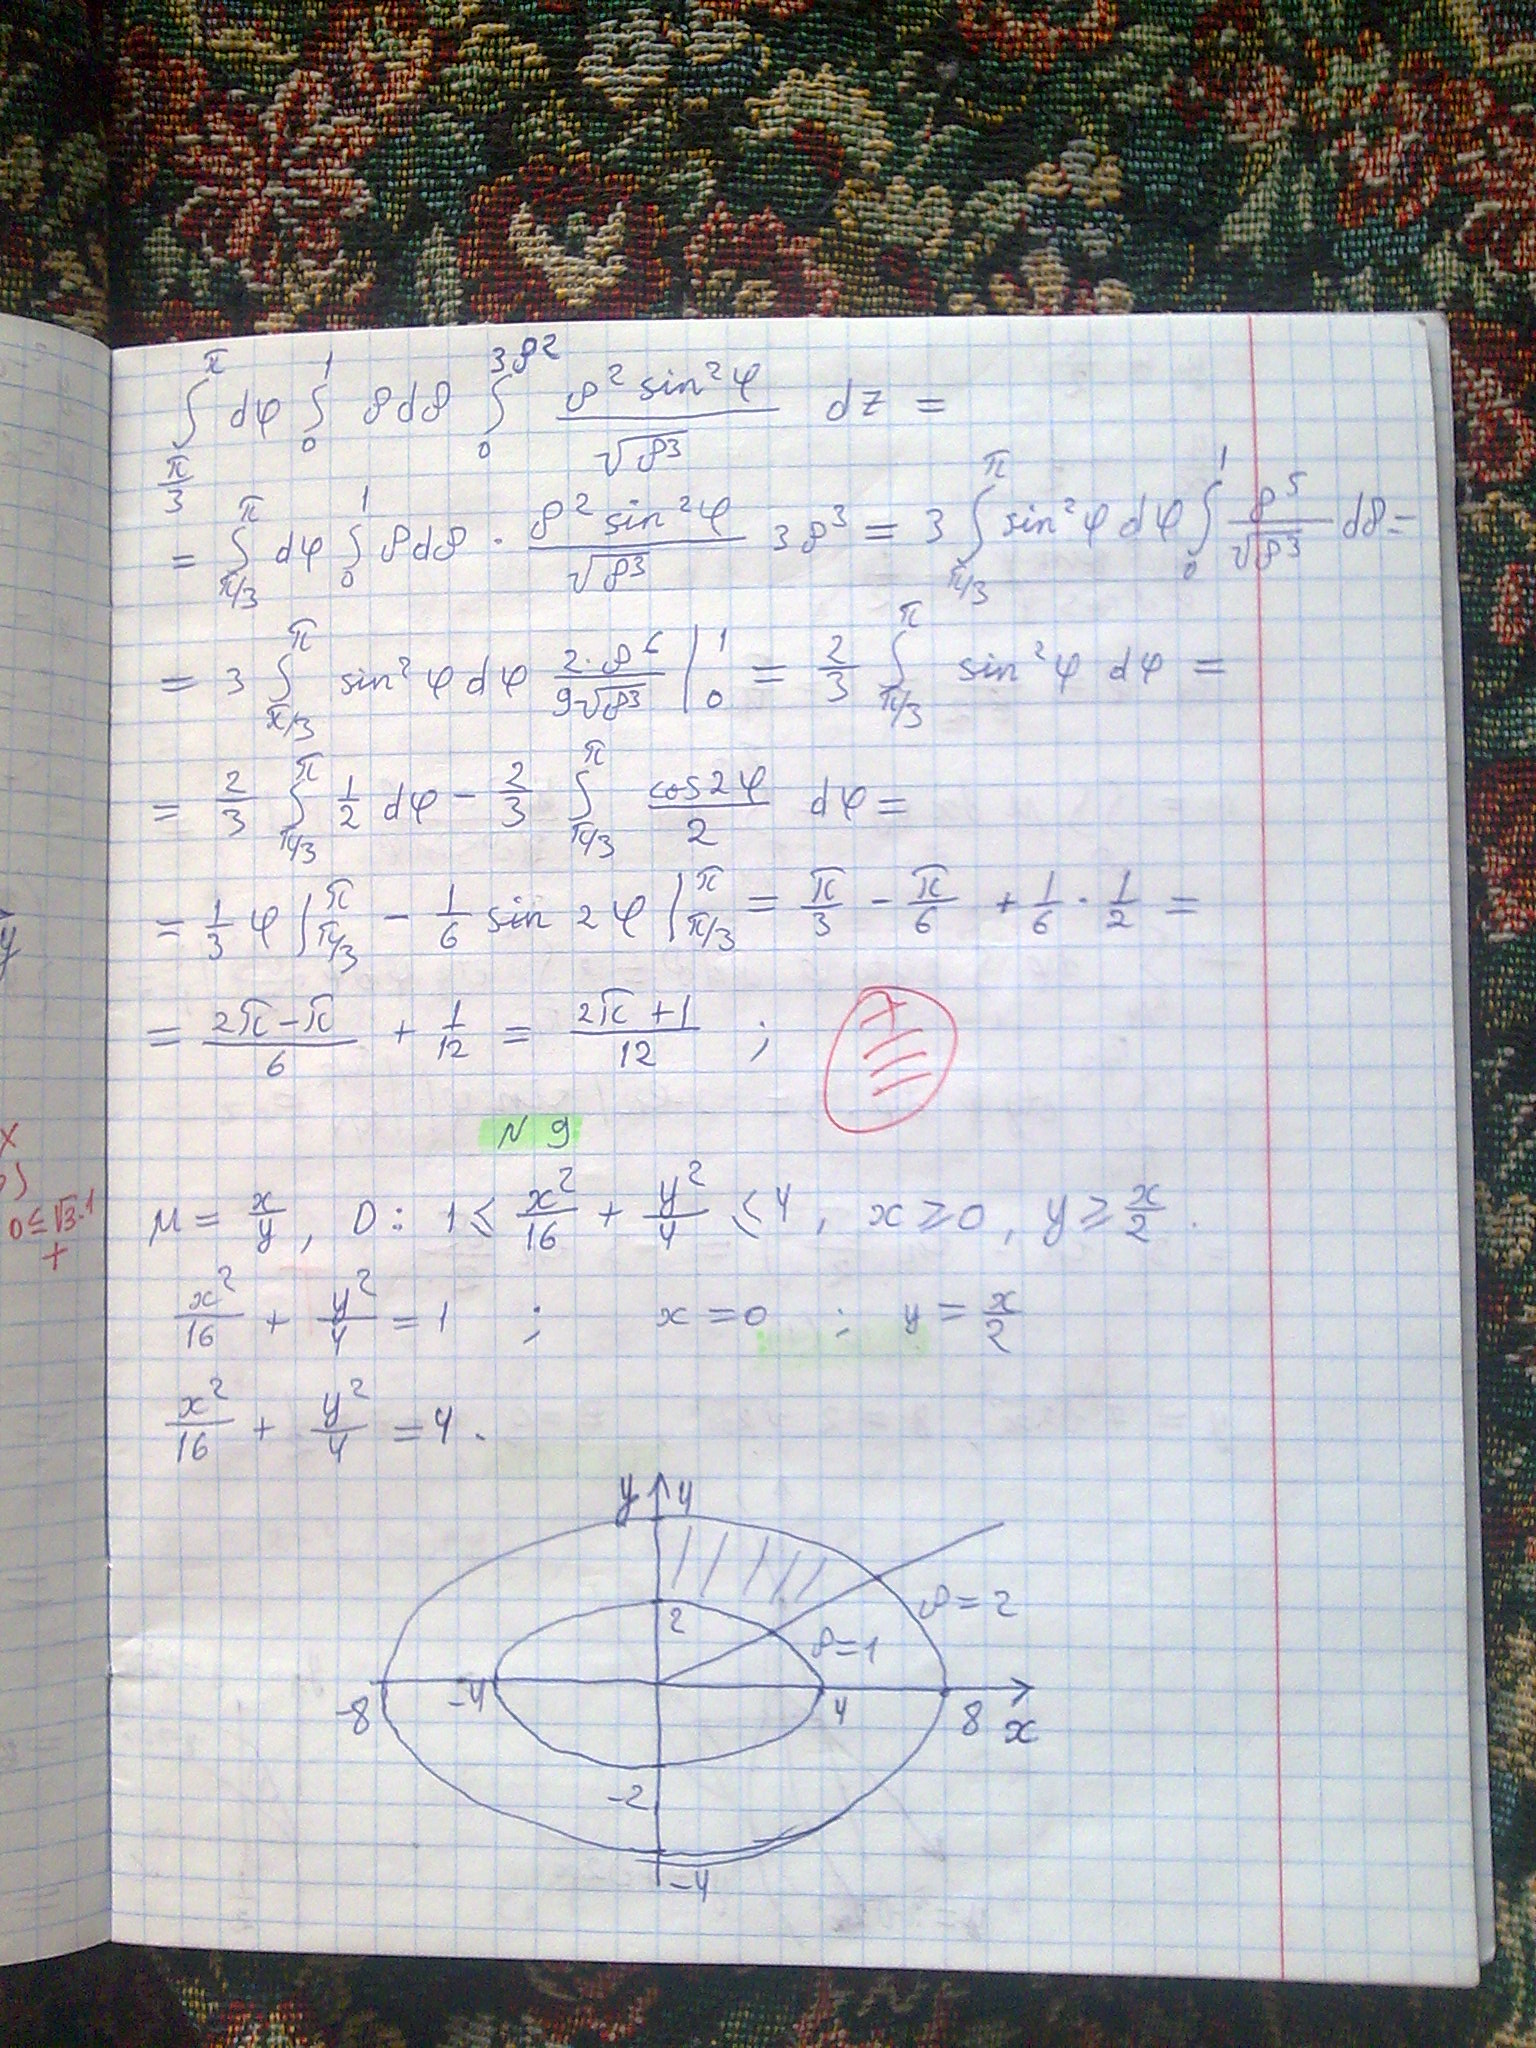 ∫_{π/3}^{π} dφ ∫_0^1 ρdρ ∫_0^{3ρ²} (ρ² sin²φ)/(√ρ³) dz =
= ∫_{π/3}^{π} dφ ∫_0^1 ρdρ · (ρ² sin²φ)/(√ρ³) 3ρ³ = 3 ∫_{π/3}^{π} sin²φ dφ ∫_0^1 ρ⁵/√ρ³ dρ =
= 3 ∫_{π/3}^{π} sin²φ dφ (2·ρ⁶)/(9√ρ³) |_0^1 = 2/3 ∫_{π/3}^{π} sin²φ dφ =
= 2/3 ∫_{π/3}^{π} 1/2 dφ - 2/3 ∫_{π/3}^{π} (cos2φ)/2 dφ =
= 1/3 φ |_{π/3}^{π} - 1/6 sin 2φ |_{π/3}^{π} = π/3 - π/6 + 1/6 · 1/2 =
= (2π-π)/6 + 1/12 = (2π+1)/12 ;
+
N 9
μ = x/y, D: 1 ≤ x²/16 + y²/4 ≤ 4, x ≥ 0, y ≥ x/2.
x²/16 + y²/4 = 1 ; x = 0 ; y = x/2
x²/16 + y²/4 = 4.
y 4
ρ=2
2
ρ=1
-8 -4 4 8 x
-2
-4
y
x
0≤√3·1
+